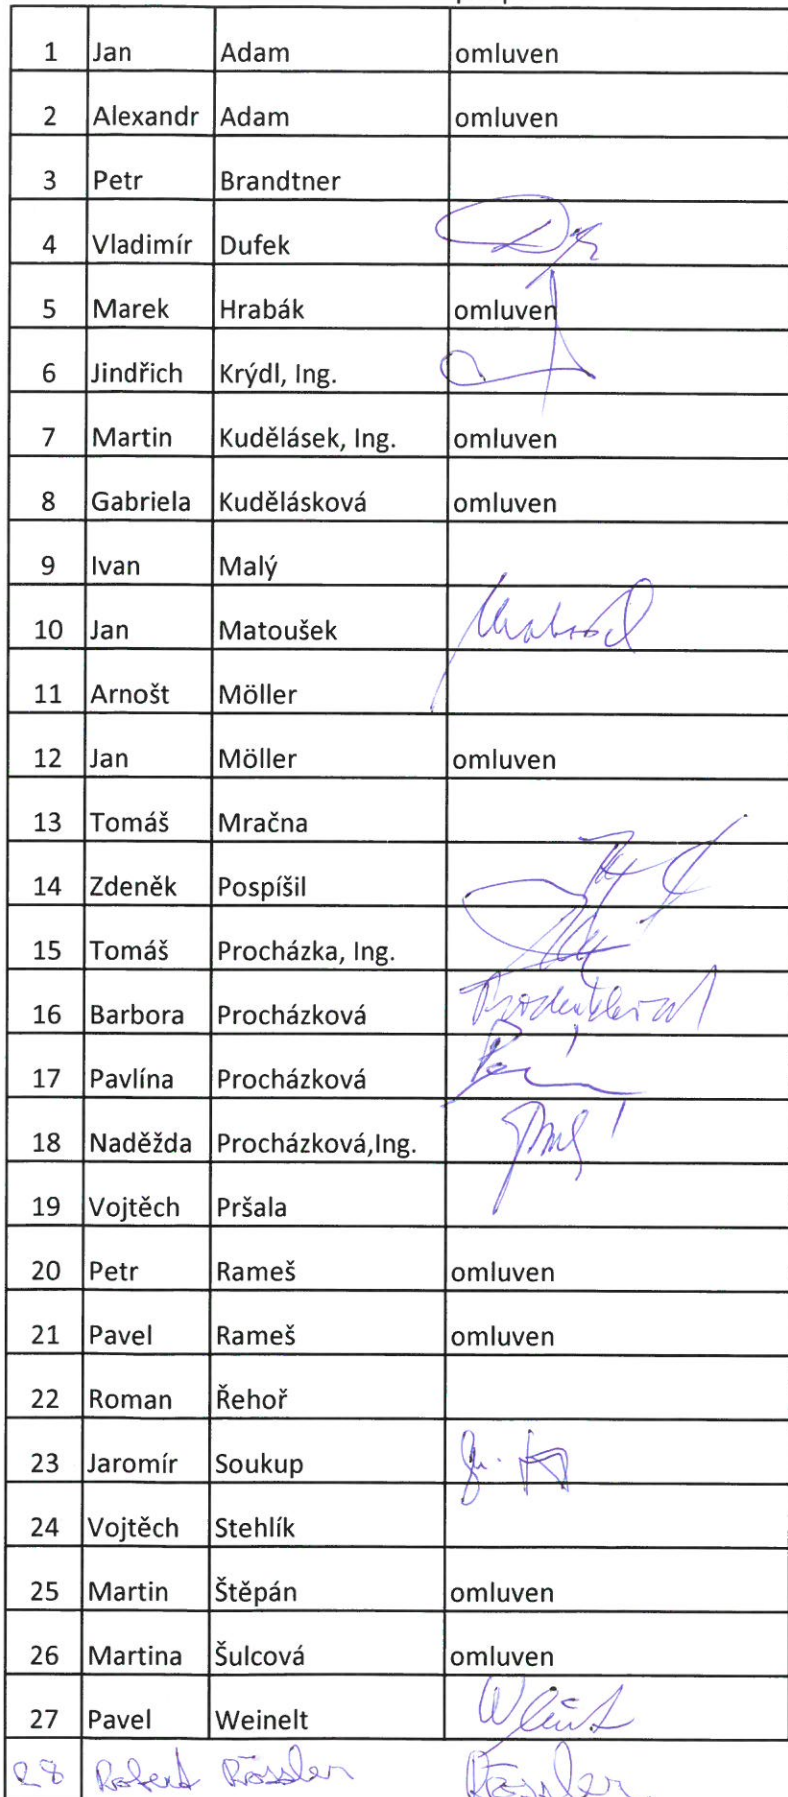 1 Jan Adam omluven
2 Alexandr Adam omluven
3 Petr Brandtner
4 Vladimír Dufek
5 Marek Hrabák omluven
6 Jindřich Krýdl, Ing.
7 Martin Kudělásek, Ing. omluven
8 Gabriela Kudělásková omluven
9 Ivan Malý
10 Jan Matoušek
11 Arnošt Möller
12 Jan Möller omluven
13 Tomáš Mračna
14 Zdeněk Pospíšil
15 Tomáš Procházka, Ing.
16 Barbora Procházková
17 Pavlína Procházková
18 Naděžda Procházková,Ing.
19 Vojtěch Pršala
20 Petr Rameš omluven
21 Pavel Rameš omluven
22 Roman Řehoř
23 Jaromír Soukup
24 Vojtěch Stehlík
25 Martin Štěpán omluven
26 Martina Šulcová omluven
27 Pavel Weinelt
28 Robert Rössler Rössler